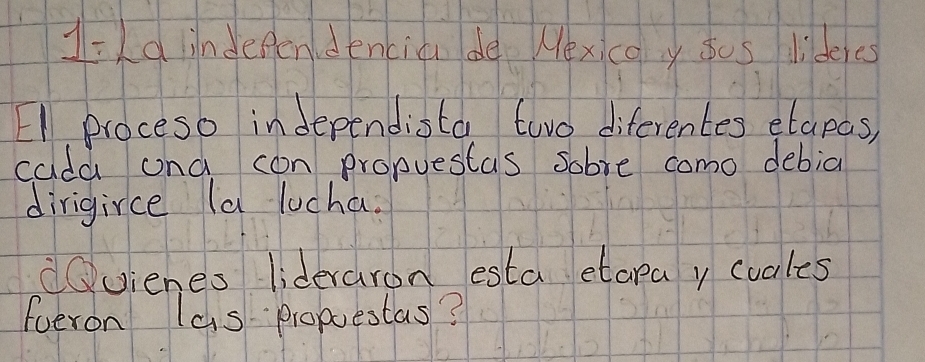 1-La independencia de Mexico y sus lideres
El proceso independista tuvo diferentes etapas,
cada una con propuestas sobre como debia
dirigirce la lucha.
¿Quienes lideraron esta etapa y cuales
fueron las propuestas?